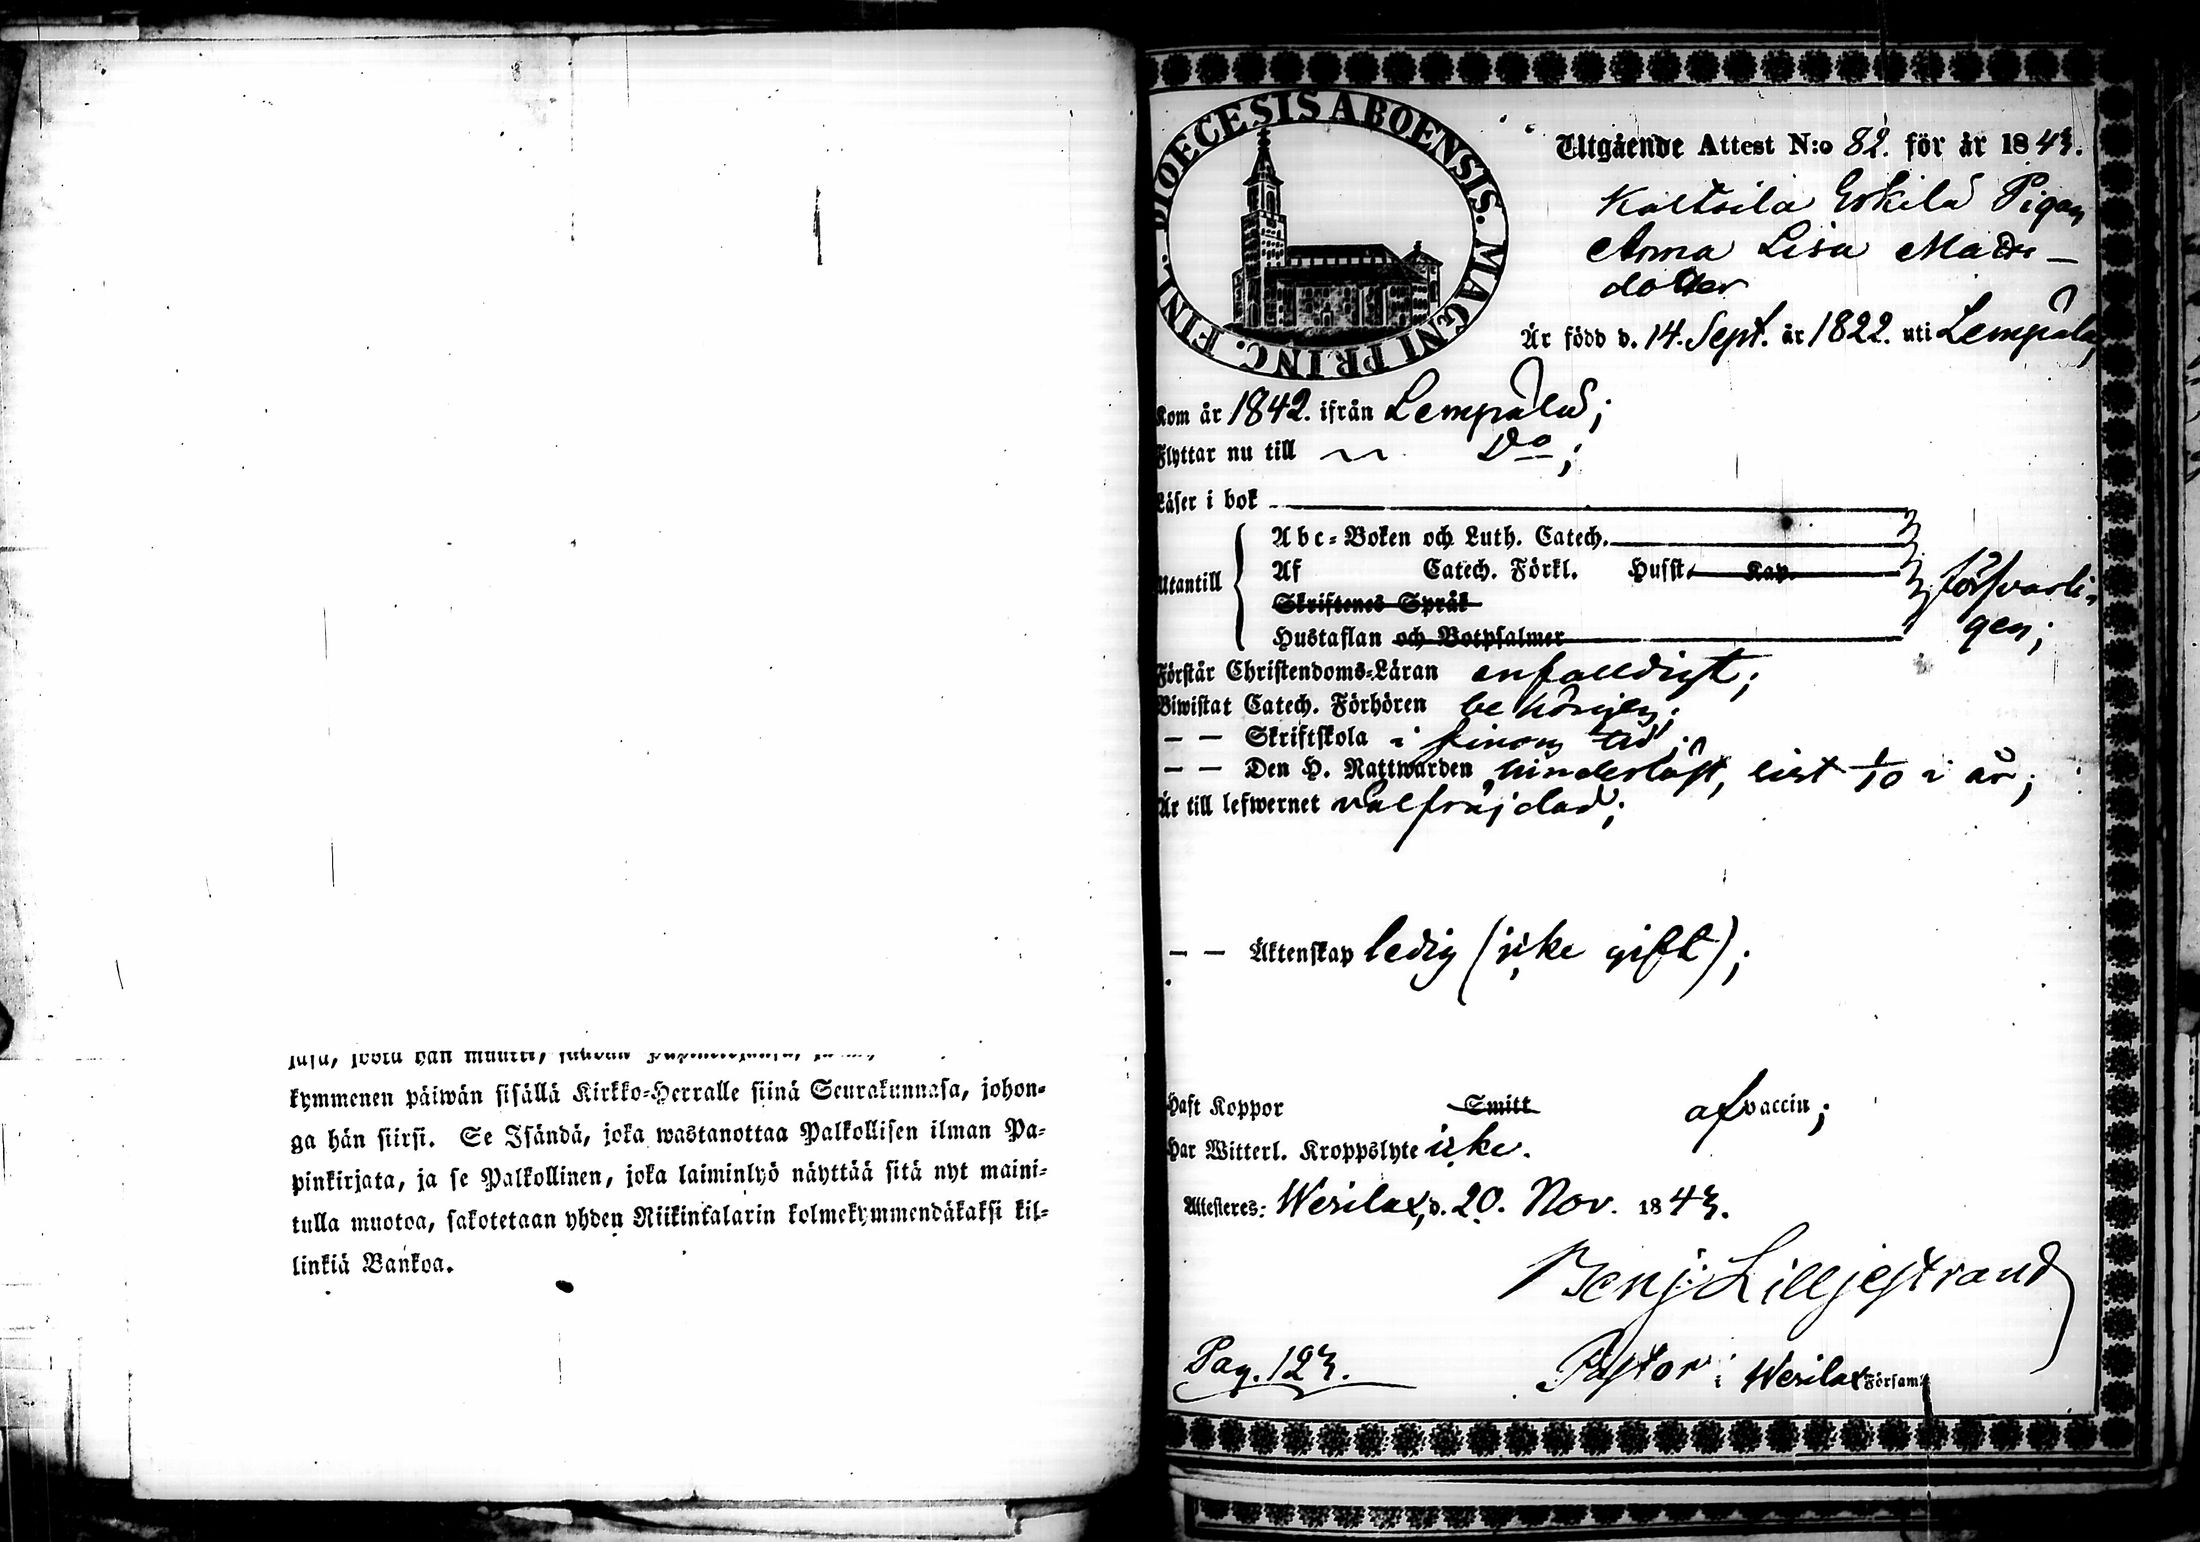 kymmenen päiwän sisällä Kirkko-Herralle siinä Seurakunnasa, johon-
ga hän siirsi. Se Isändä, joka wastanottaa Palkollisen ilman Pa-
pinkirjata, ja se Palkollinen, joka laiminlyö näyttää sitä nyt maini-
tulla muotoa, sakotetaan yhden Riikintalarin kolmekymmendäkaksi kil-
linkiä Bankoa.
DIOECESIS ABOENSIS. MAGNI PRINC. FINL.
Utgående Attest N:o 82. för år 1843.
Kaltsila Eskilä Pigan
Anna Lisa Mads-
dotter
Är född d. 14. Sept. år 1822. uti Lempälä,
Kom år 1842. ifrån Lempälä;
Flyttar nu till Do;
Läser i bok
Abc-Boken och Luth. Catech.
Utantill Af Catech. Förkl. Husst. Kap.
försvarli-
Skriftenes Språk
gen;
Hustaflan och Botpsalmer
Förstår Christendoms-Läran enfaldigt;
Biwistat Catech. Förhören behörigen;
— — Skriftskola i sinom tid;
— — Den H. Nattwarden hinderlöst, sist 1/10 i år;
Är till lefwernet välfräjdad;
— — Äktenskap ledig (icke gift);
Haft Koppor Smitt af vaccin;
Har Witterl. Kroppslyte icke.
Attesteres: Wesilax, d. 20. Nov. 1843.
Benj. Lilljestrand
Pag. 123.
Pastor i Wesilax Församl.